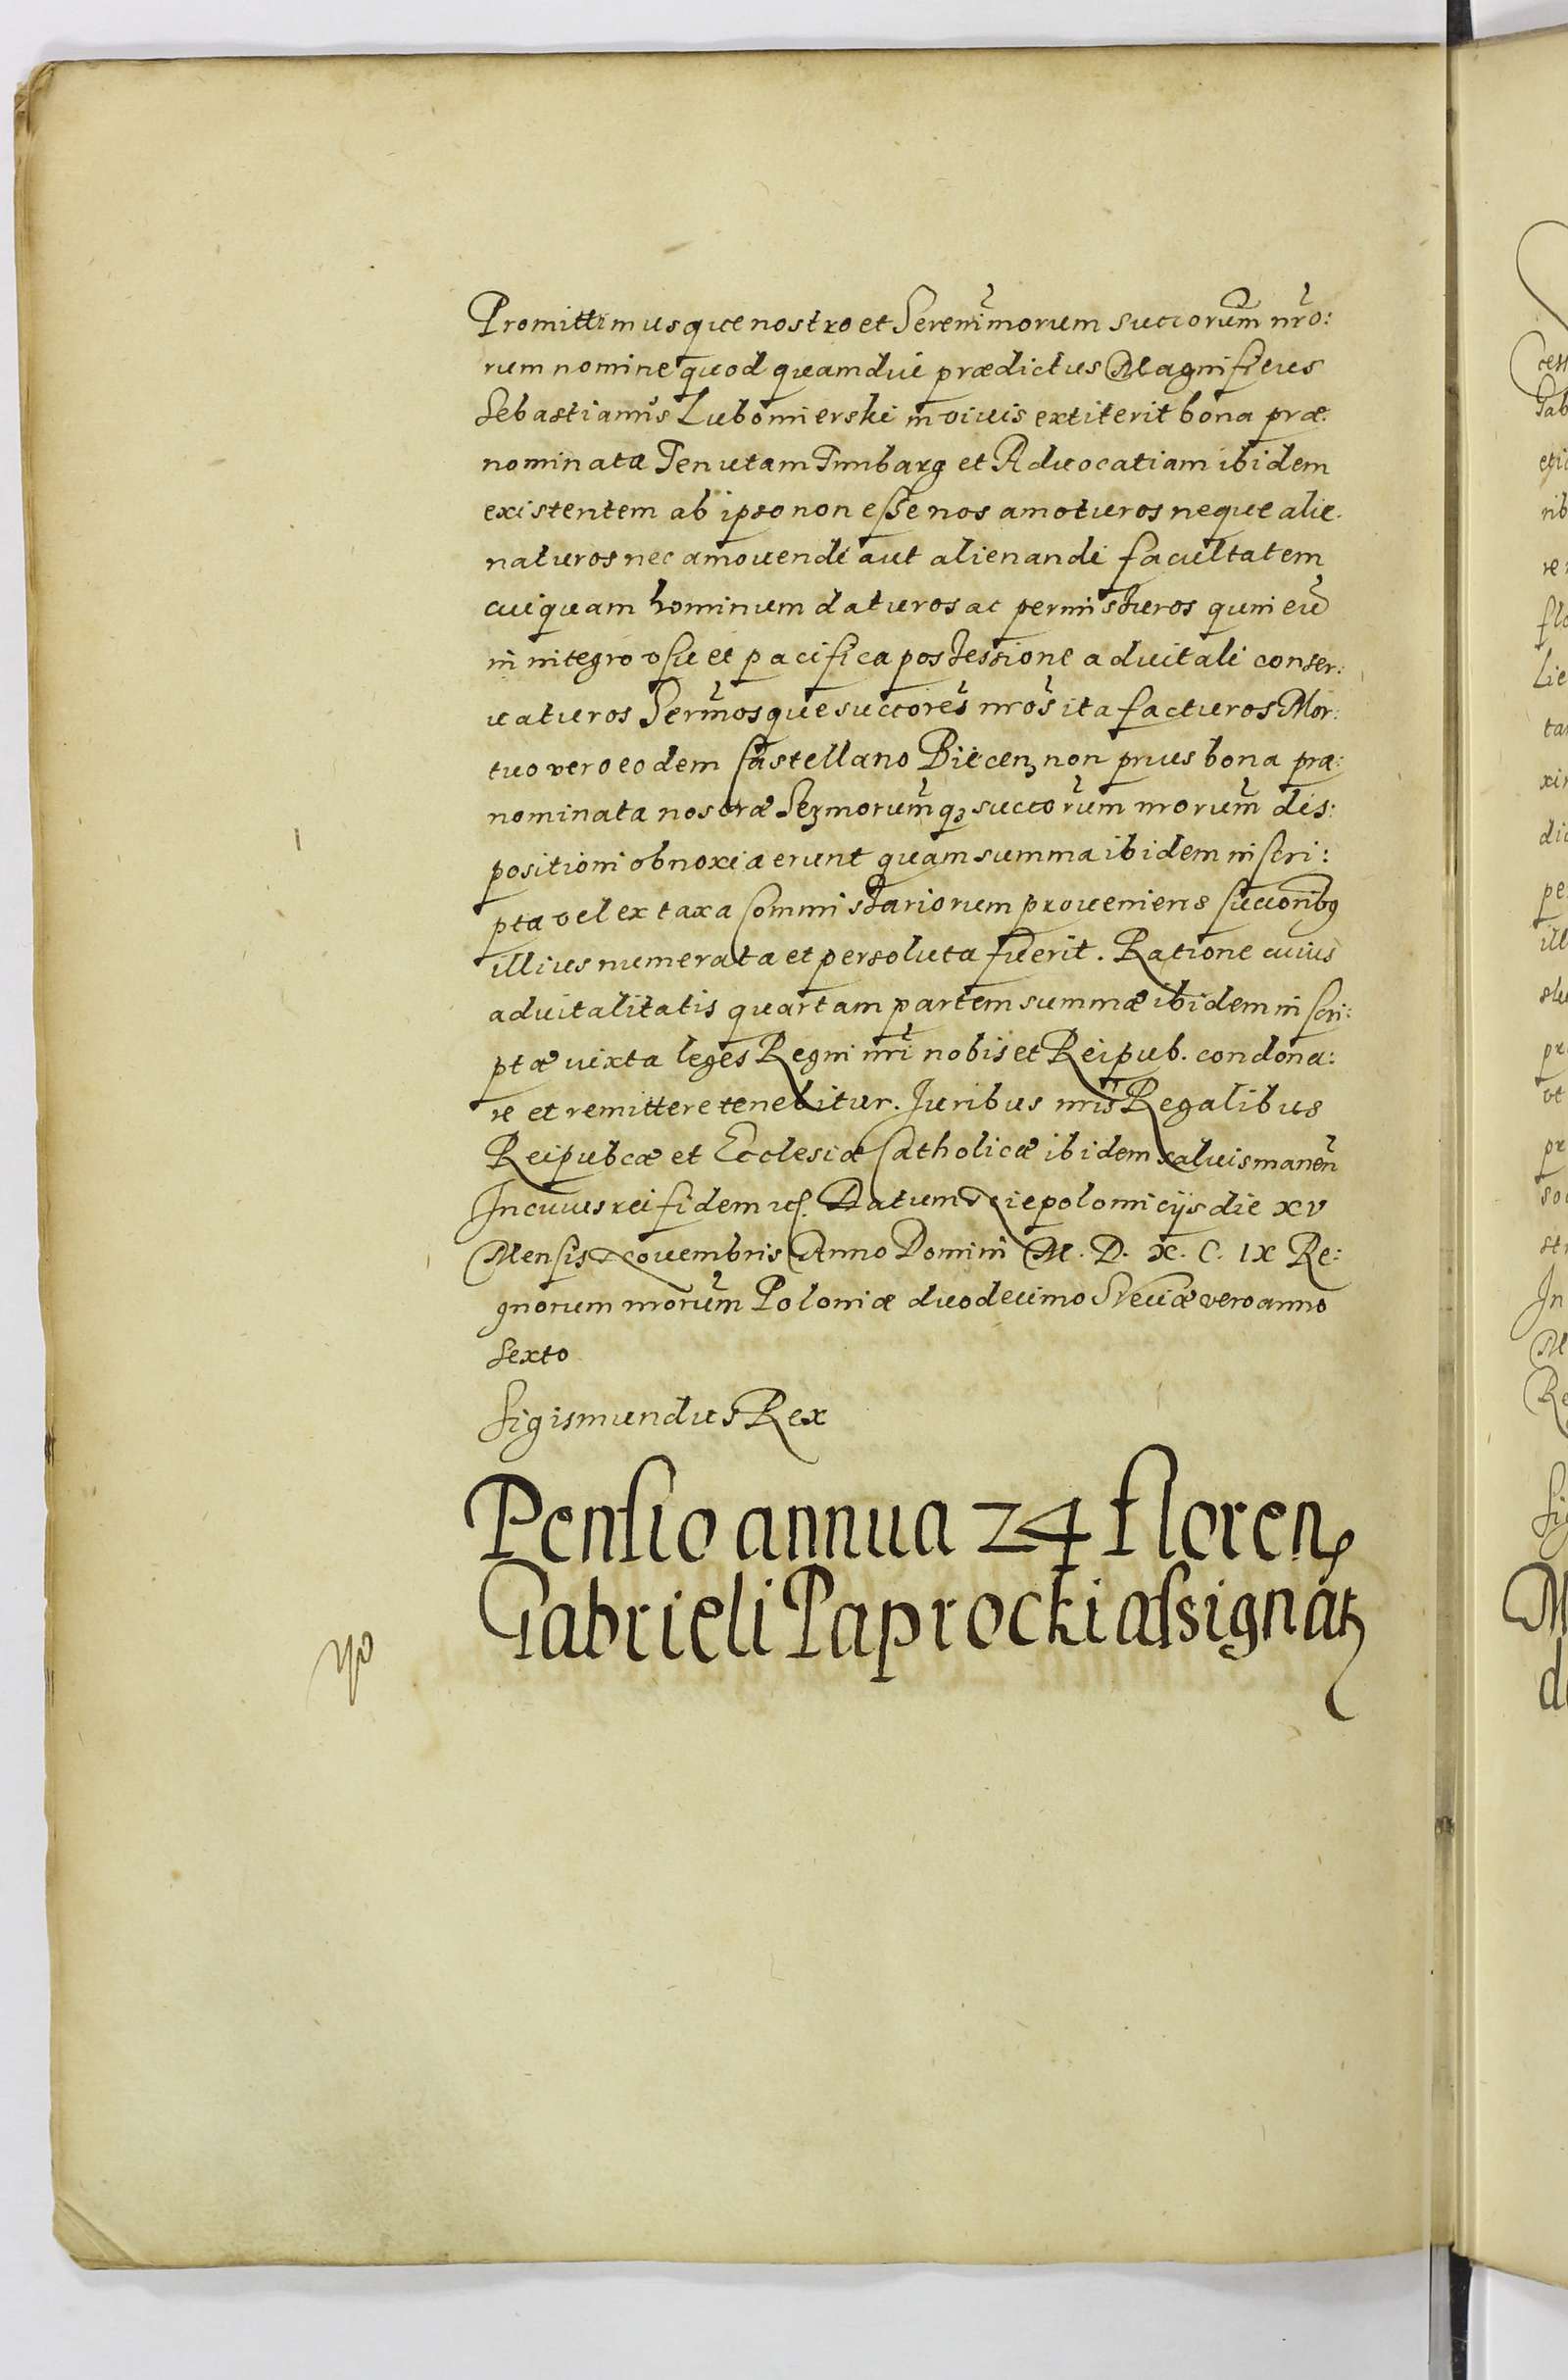 Promittimusque nostro et Serenimorum succorum nro:
rum nomine quod quamdui prædictus Magnificus
Sebastianus Lubomierski in vivis extiterit bona præ:
nominata Tenutam Timbarg et Advocatiam ibidem
existentem ab ipso non esse nos amoturos neque alie:
naturos nec amovendi aut alienandi facultatem
cuiquam hominum daturos ac permissuros quin eum
in integro usu et pacifica possessione advitali conser:
uaturos Sermosque succores nros ita facturos Mor:
tuo vero eodem Castellano Biecen non prius bona præ:
nominata nostræ Sermorumq3 succorum nrorum dis:
positioni obnoxia erunt quam summa ibidem inscri:
pta vel ex taxa Commissariorum proveniens succoribus
illius numerata et persoluta fuerit. Ratione cuius
advitalitatis quartam partem summæ ibidem inscri:
ptæ iuxta leges Regni nri nobis et Reipub. condona:
re et remittere tenebitur. Juribus nris Regalibus
Reipubcæ et Ecclesiæ Catholicæ ibidem salvis manen
In cuius rei fidem Datum Niepolomicijs die XV
Mensis Novembris Anno Domini M. D. X. C. IX Re:
gnorum nrorum Poloniæ duodecimo Sveciæ vero anno
sexto
Sigismundus Rex
Pensio annua 24 floren
Gabrieli Paprocki assignat